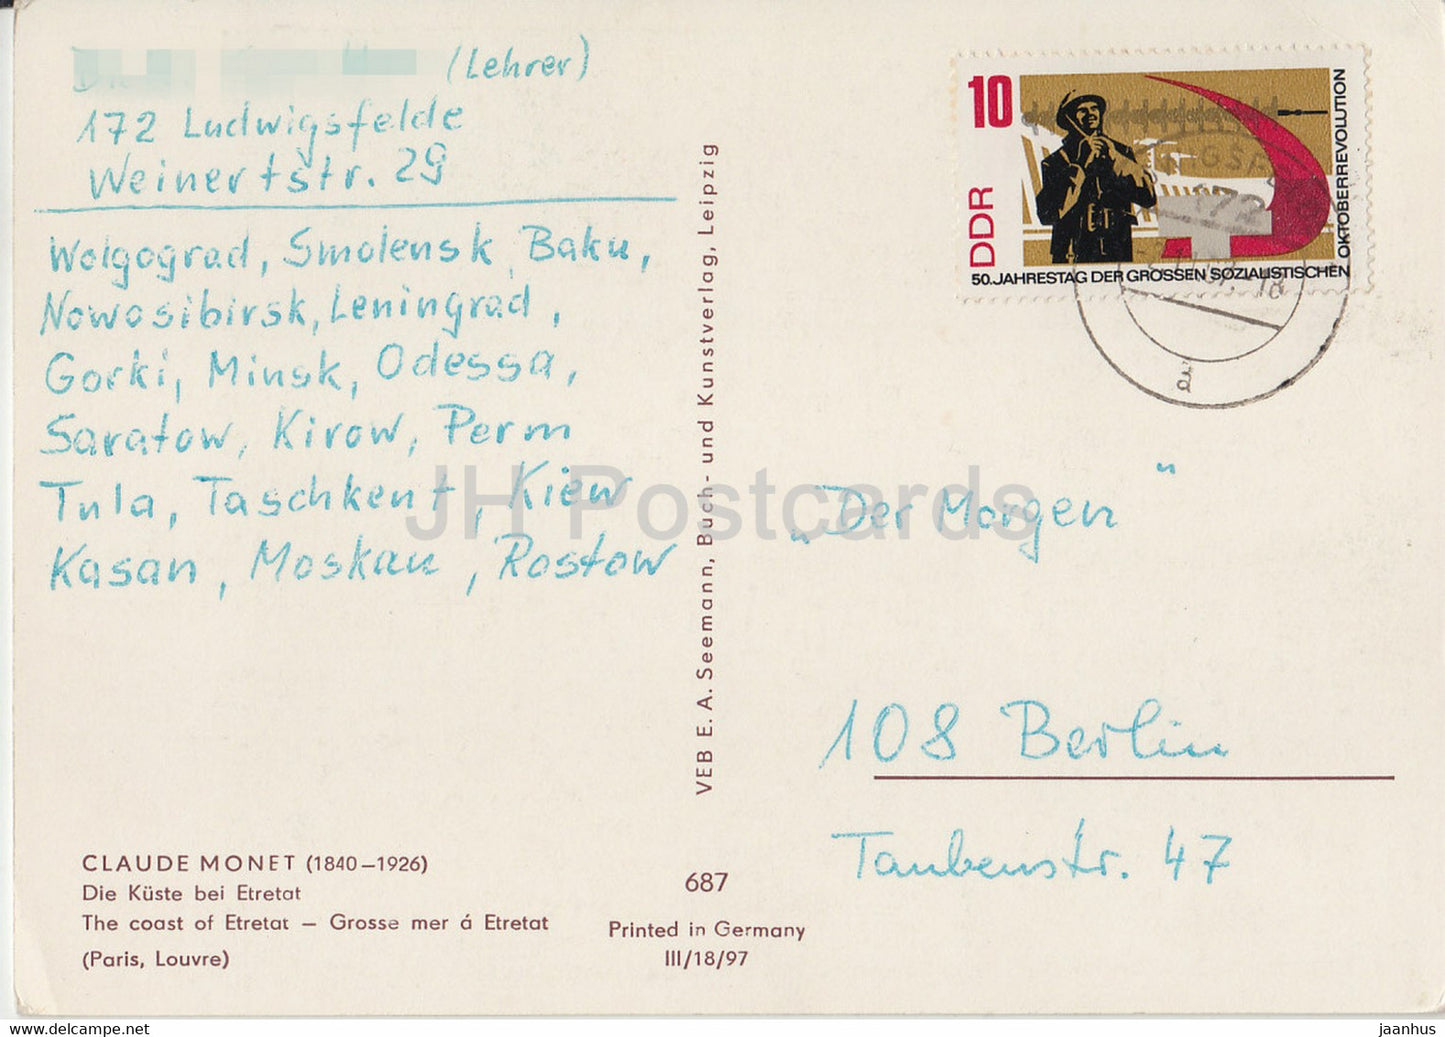 (Lehrer)
172 Ludwigsfelde
Weinertstr. 29
Wolgograd, Smolensk, Baku,
Nowosibirsk, Leningrad,
Gorki, Minsk, Odessa,
Saratow, Kirow, Perm
Tula, Taschkent, Kiew
Kasan, Moskau, Rostow
CLAUDE MONET (1840–1926)
Die Küste bei Etretat
The coast of Etretat – Grosse mer á Etretat
(Paris, Louvre)
VEB E. A. Seemann, Buch- und Kunstverlag, Leipzig
687
Printed in Germany
III/18/97
10
DDR
50. JAHRESTAG DER GROSSEN SOZIALISTISCHEN
OKTOBERREVOLUTION
172
„Der Morgen"
108 Berlin
Taubenstr. 47
JH Postcards
https://jhpostcards.com
jaanhus